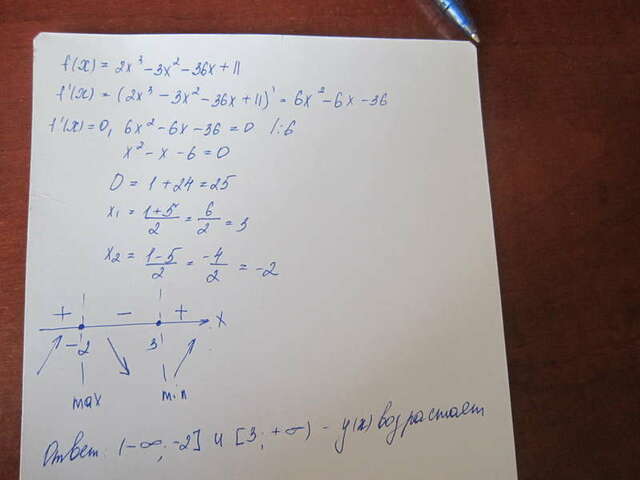 f(x) = 2x³ - 3x² - 36x + 11
f'(x) = (2x³ - 3x² - 36x + 11)' = 6x² - 6x - 36
f'(x) = 0, 6x² - 6x - 36 = 0 /:6
x² - x - 6 = 0
D = 1 + 24 = 25
x₁ = (1+5)/2 = 6/2 = 3
x₂ = (1-5)/2 = -4/2 = -2
+ - + x
-2 3
max min
Ответ: (-∞; -2] и [3; +∞) - y(x) возрастает